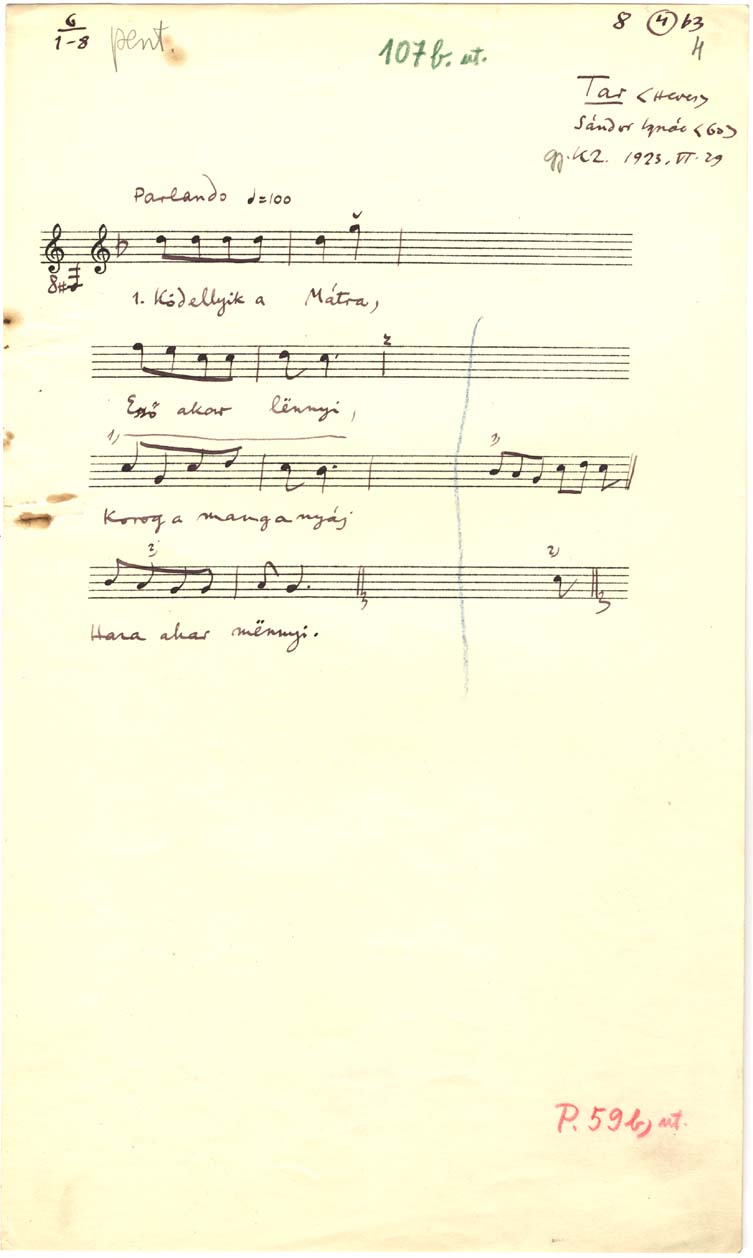 6
1-8 pent.
8 4 b3
4
107b. ut.
Tar <Heves>
Sándor Ignác <60>
gy. K Z. 1923. VI. 29
Parlando = 100
8
1. Ködellyik a Mátra,
2
Esső akar lënnyi,
1)
1)
Korog a manga nyáj
2)
2)
3
3
Haza akar mënnyi.
P. 59 b) ut.